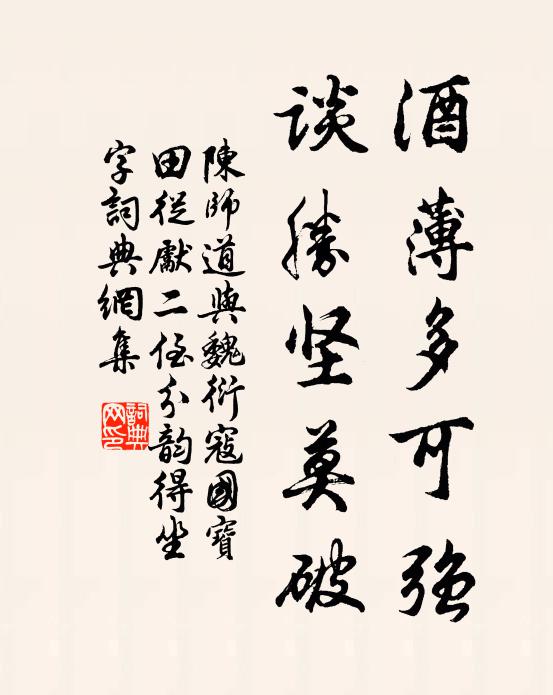 酒薄多可强
谈勝坚莫破
陳師道與魏衍寇國寶
田從獻二侄分韵得坐
字詞典網集
詞典网印